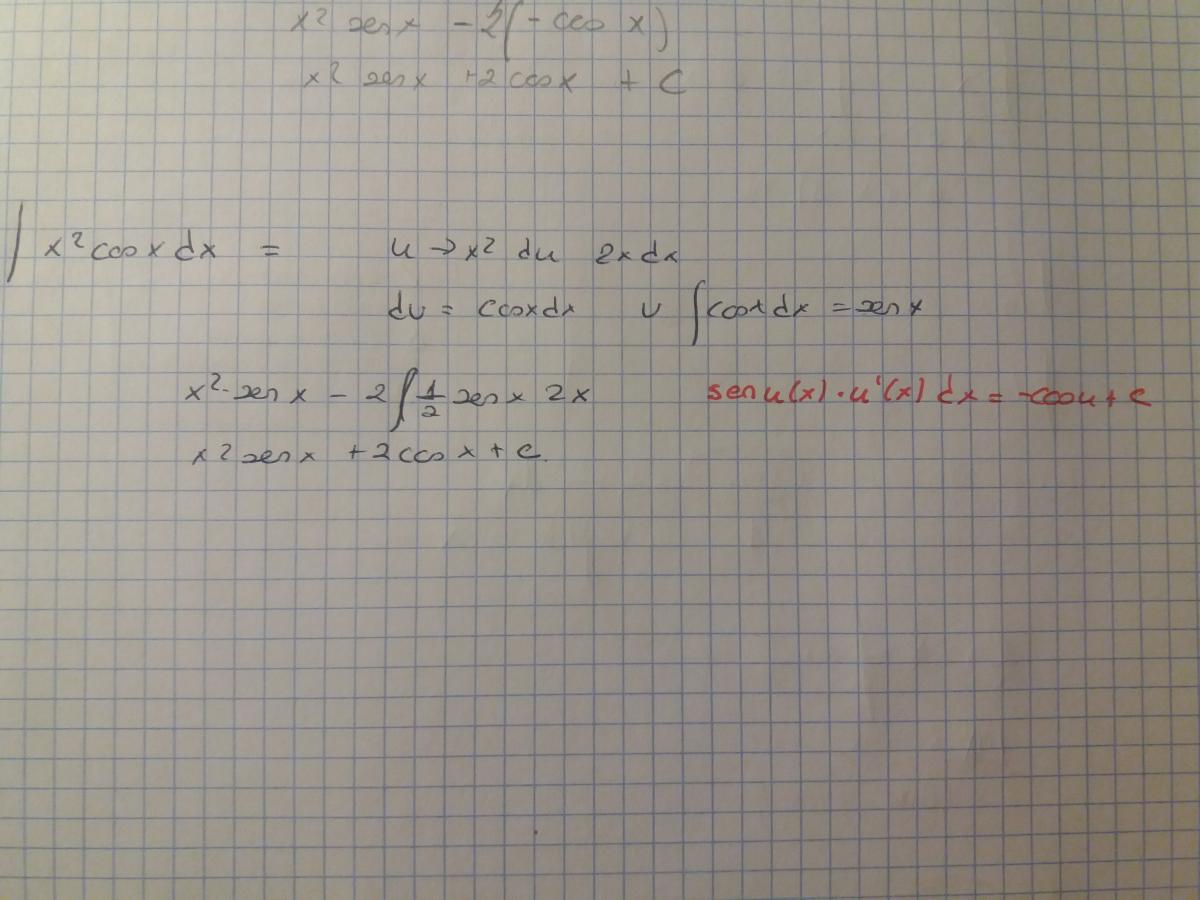 x² sen x - 2(-cos x)
x² sen x +2 cos x + C
∫ x² cos x dx = u → x² du 2x dx
dv = cos x dx v ∫ cos x dx = sen x
x² · sen x - 2 ∫ 1/2 sen x 2x sen u(x) · u'(x) dx = -cos u + c
x² sen x + 2 cos x + c.